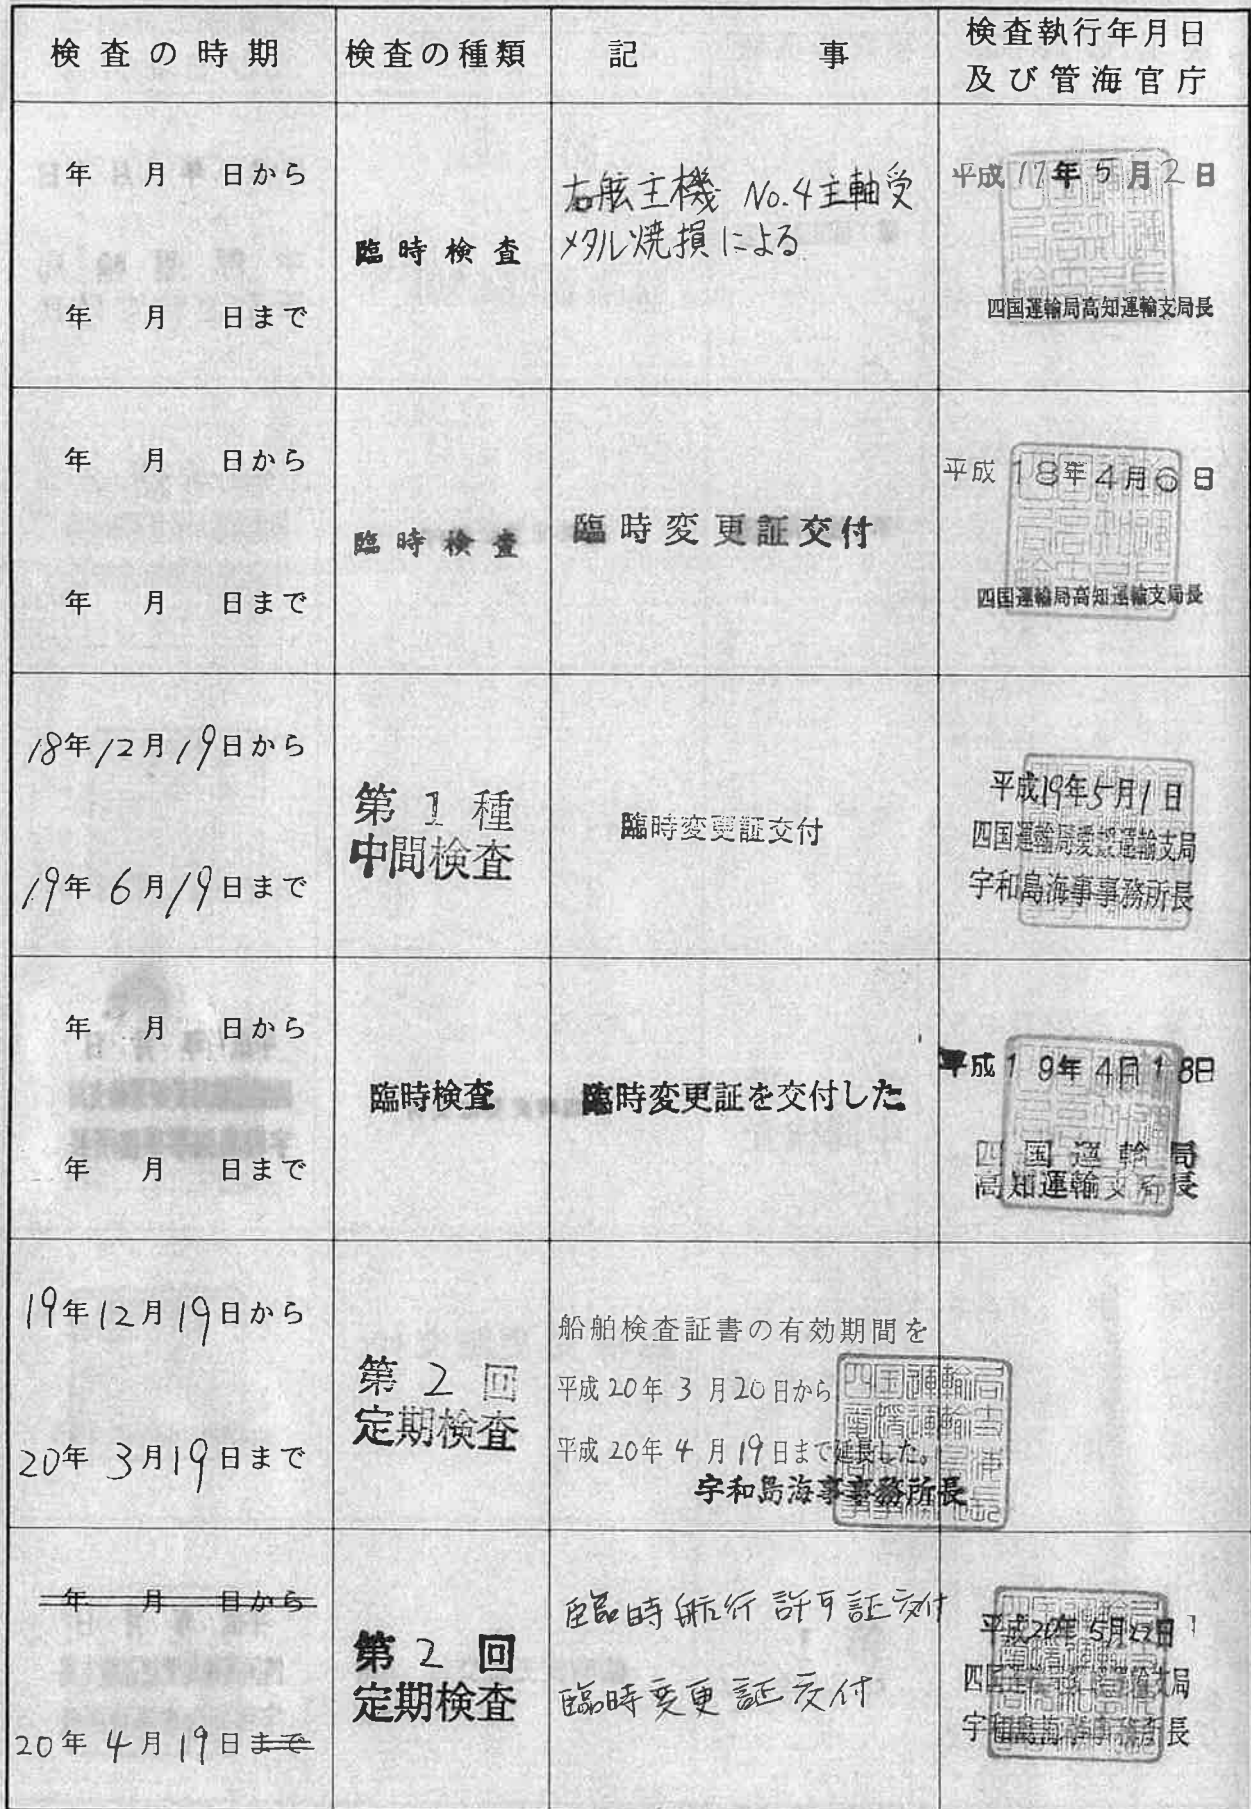 検査の時期
検査の種類
記事
検査執行年月日
及び管海官庁
年 月 日から
年 月 日まで
臨時検査
右舷主機 No.4主軸受
メタル焼損による
平成17年5月2日
四国運輸局高知運輸支局長
年 月 日から
年 月 日まで
臨時検査
臨時変更証交付
平成18年4月6日
四国運輸局高知運輸支局長
18年12月19日から
19年6月19日まで
第1種
中間検査
臨時変更証交付
平成19年5月1日
四国運輸局愛媛運輸支局
宇和島海事事務所長
年 月 日から
年 月 日まで
臨時検査
臨時変更証を交付した
平成19年4月18日
四国運輸局
高知運輸支局長
19年12月19日から
20年3月19日まで
第2回
定期検査
船舶検査証書の有効期間を
平成20年3月20日から
平成20年4月19日まで延長した。
宇和島海事事務所長
年 月 日から
20年4月19日まで
第2回
定期検査
臨時航行許可証交付
臨時変更証交付
平成20年5月22日
四国運輸局愛媛運輸支局
宇和島海事事務所長